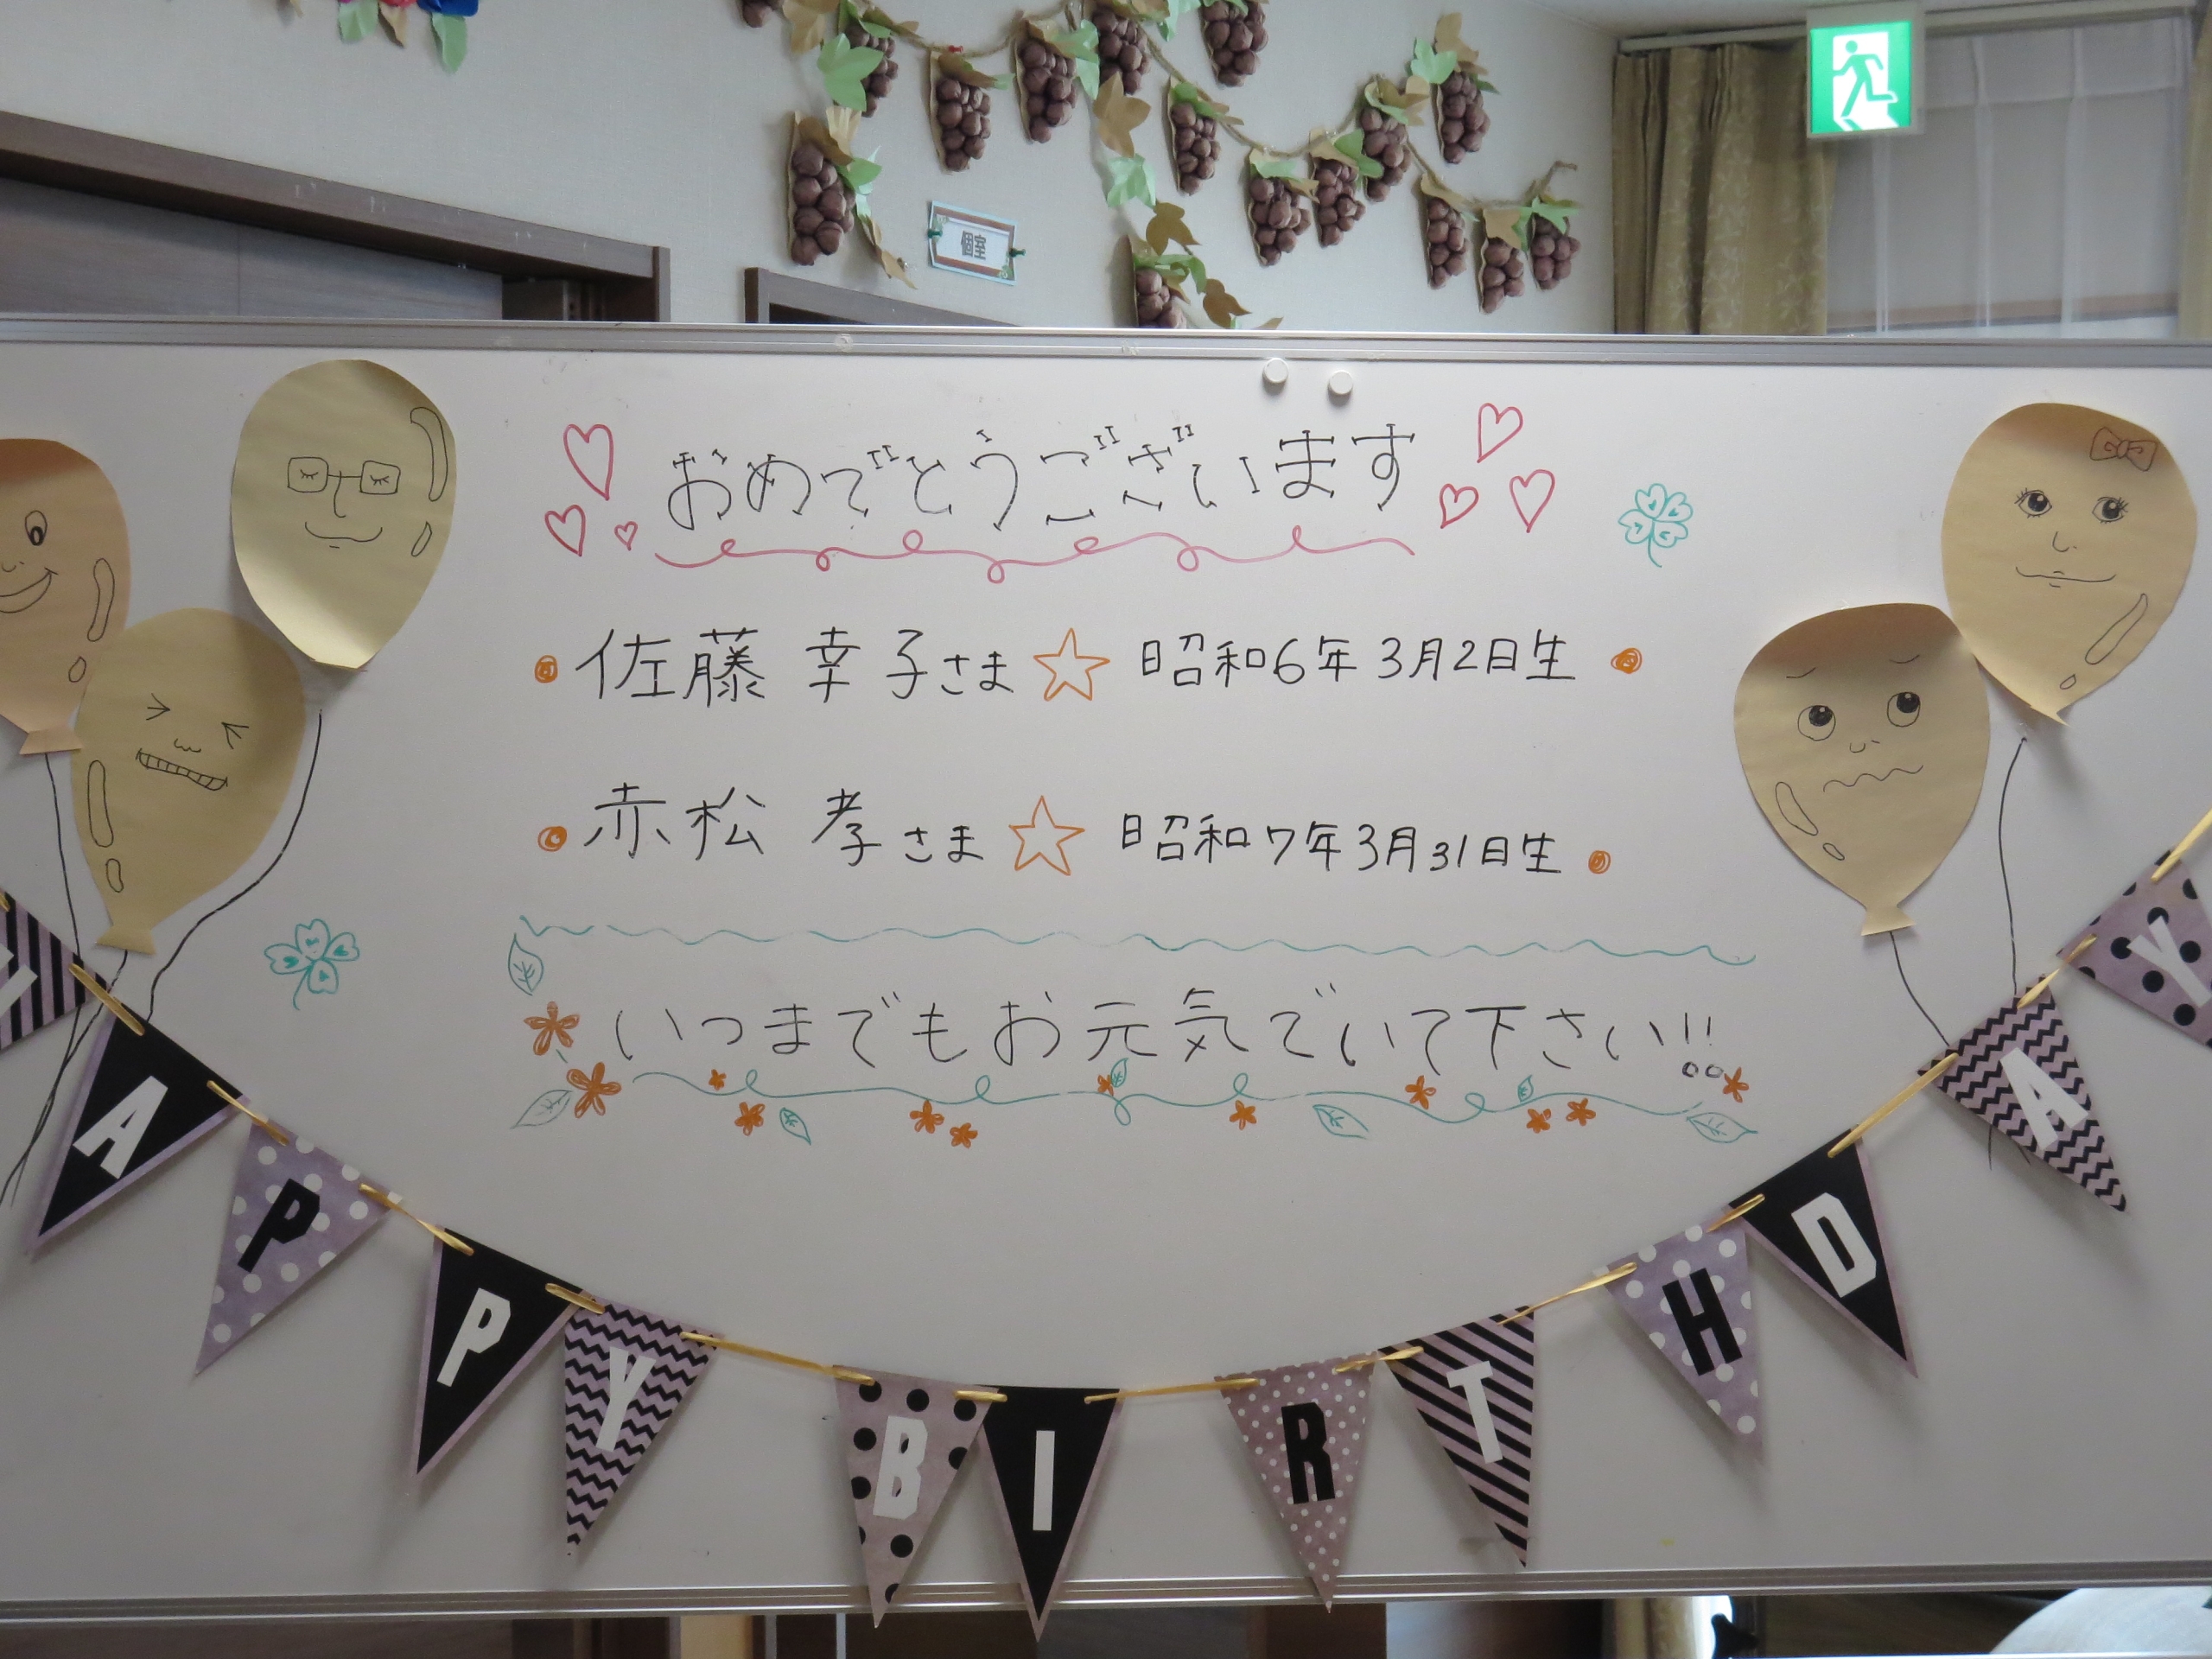 個室
おめでとうございます
佐藤 幸子さま☆ 昭和6年3月2日生
赤松 孝さま☆ 昭和7年3月31日生
いつまでもお元気でいて下さい!!
APPY BIRTHDAY